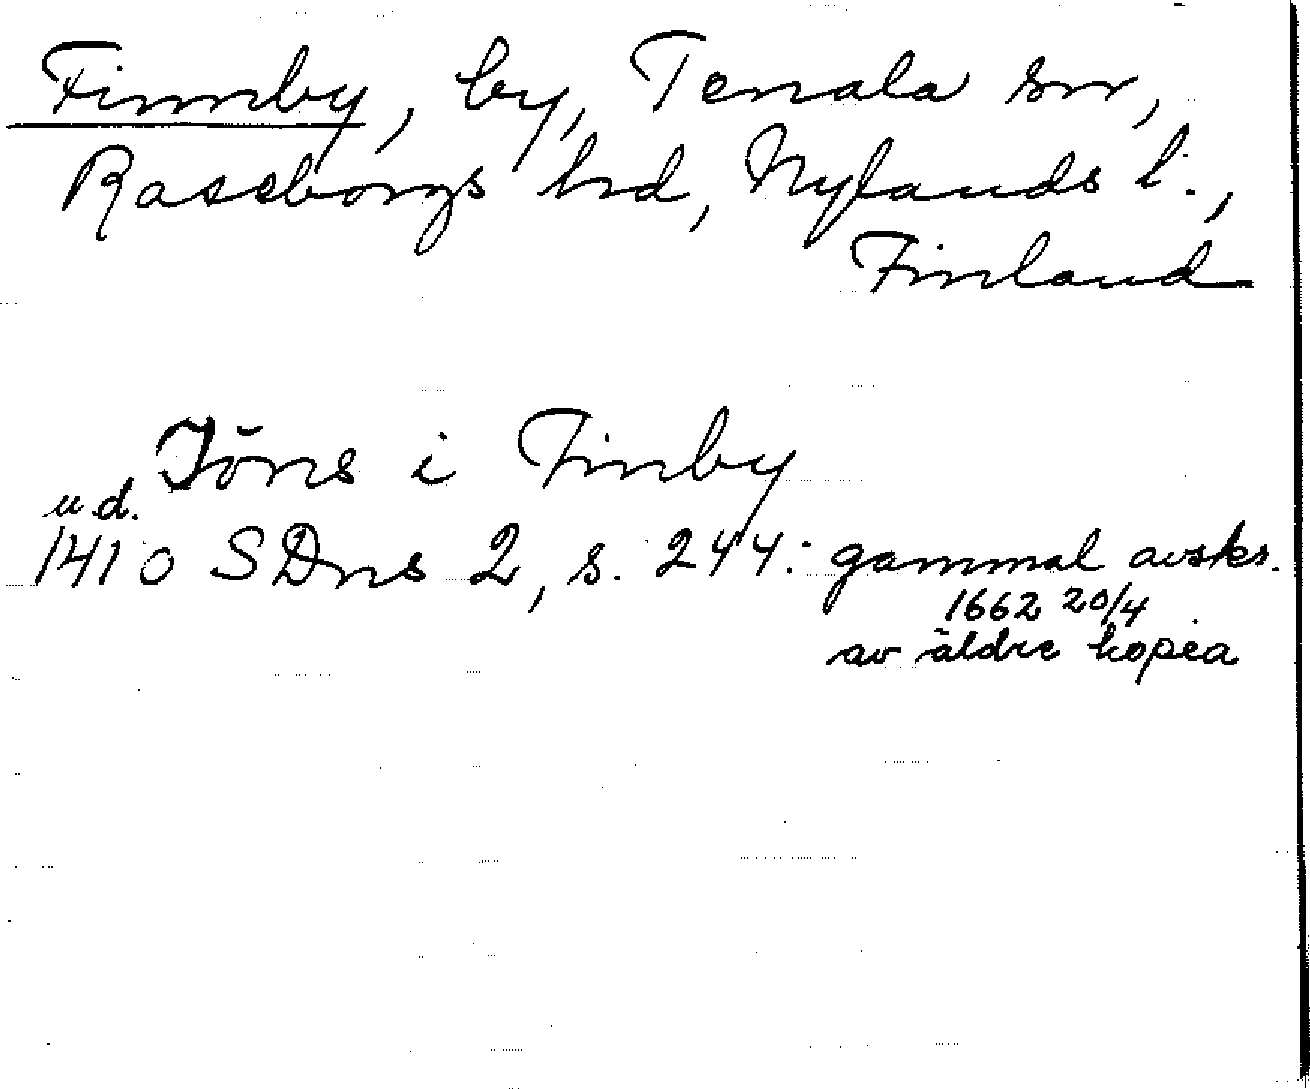 Finnby, by, Tenala sn,
Raseborgs hrd, Nylands l.,
Finland
Jöns i Finby
u.d.
1410 SDns 2, s. 244: gammal avskr.
1662 20/4
av äldre kopia